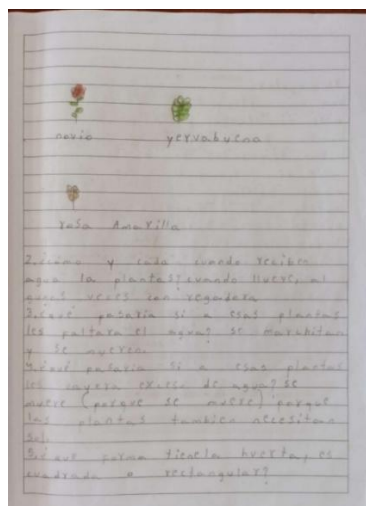 novio yervabueno
rosa Amarilla
2. ¿como y cada cuando reciben
agua la plantas? cuando llueve, al
gunas veces con regadera
3. ¿qué pasaria si a esas plantas
les faltara el agua? se marchitan
y se mueren.
4. ¿qué pasaria si a esas plantas
les cayera exceso de agua? se
muere (porque se muere) porque
las plantas tambien necesitan
sol.
5. ¿que forma tiene la huerta, es
cuadrada o rectangular?